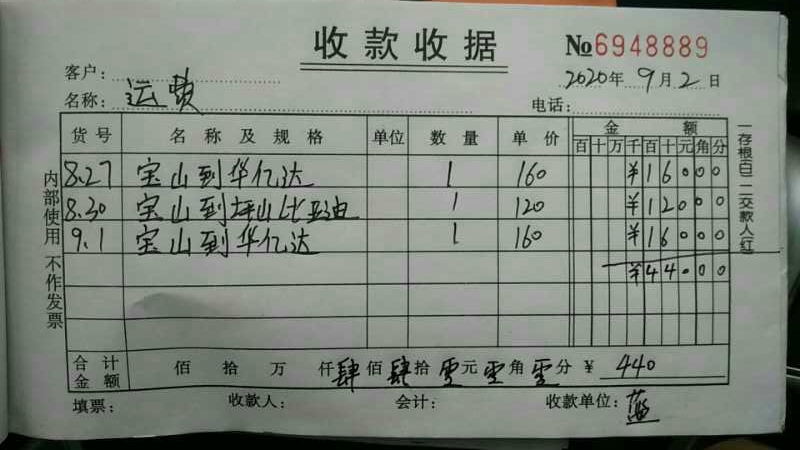 收款收据
№6948889
客户:
2020年9月2日
名称: 运费
电话:
货号 名称及规格 单位 数量 单价 金额
百十万千百十元角分
8.27 宝山到华亿达 1 160 ¥16000
8.30 宝山到坪山比亚迪 1 120 ¥12000
9.1 宝山到华亿达 1 160 ¥16000
¥44000
合计金额 佰 拾 万 仟肆佰肆拾零元零角零分 ¥ 440
填票: 收款人: 会计: 收款单位: 蓝
内部使用 不作发票
一存根(白) 二交款人(红)